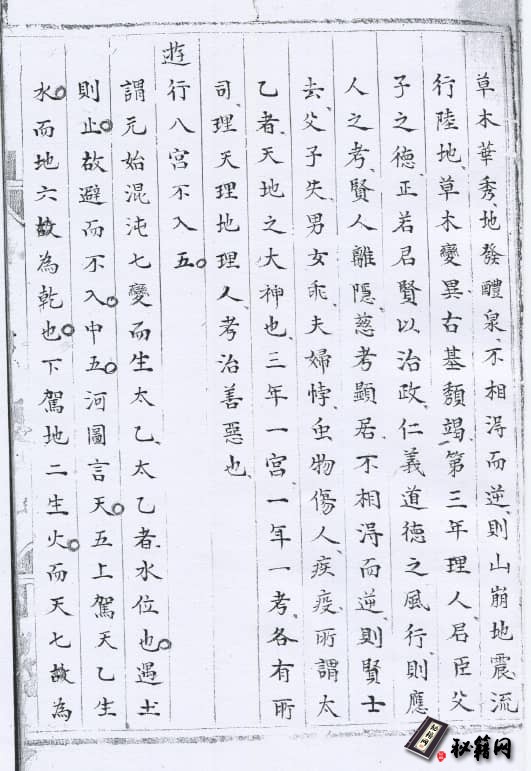 草木華秀、地發醴泉、不相淂而逆、則山崩地震、流
行陸地、草木變異、古基頽竭、第三年理人、君臣父
子之德、正若君賢以治政、仁義道德之風行、則應
人之考、賢人離隱、慈考顯居、不相淂而逆、則賢士
去、父子失、男女乖、夫婦悖、虫物傷人、疾疫、所謂太
乙者、天地之大神也、三年一宮、一年一考、各有所
司、理天理地理人、考治善惡也、
遊行八宮不入五。
謂元始混沌七變而生太乙、太乙者、水位也。遇土
則止。故避而不入。中五。河圖言天。五上駕天乙生
水。而地六故為乾也。下駕地二生火。而天七故為
秘籍网